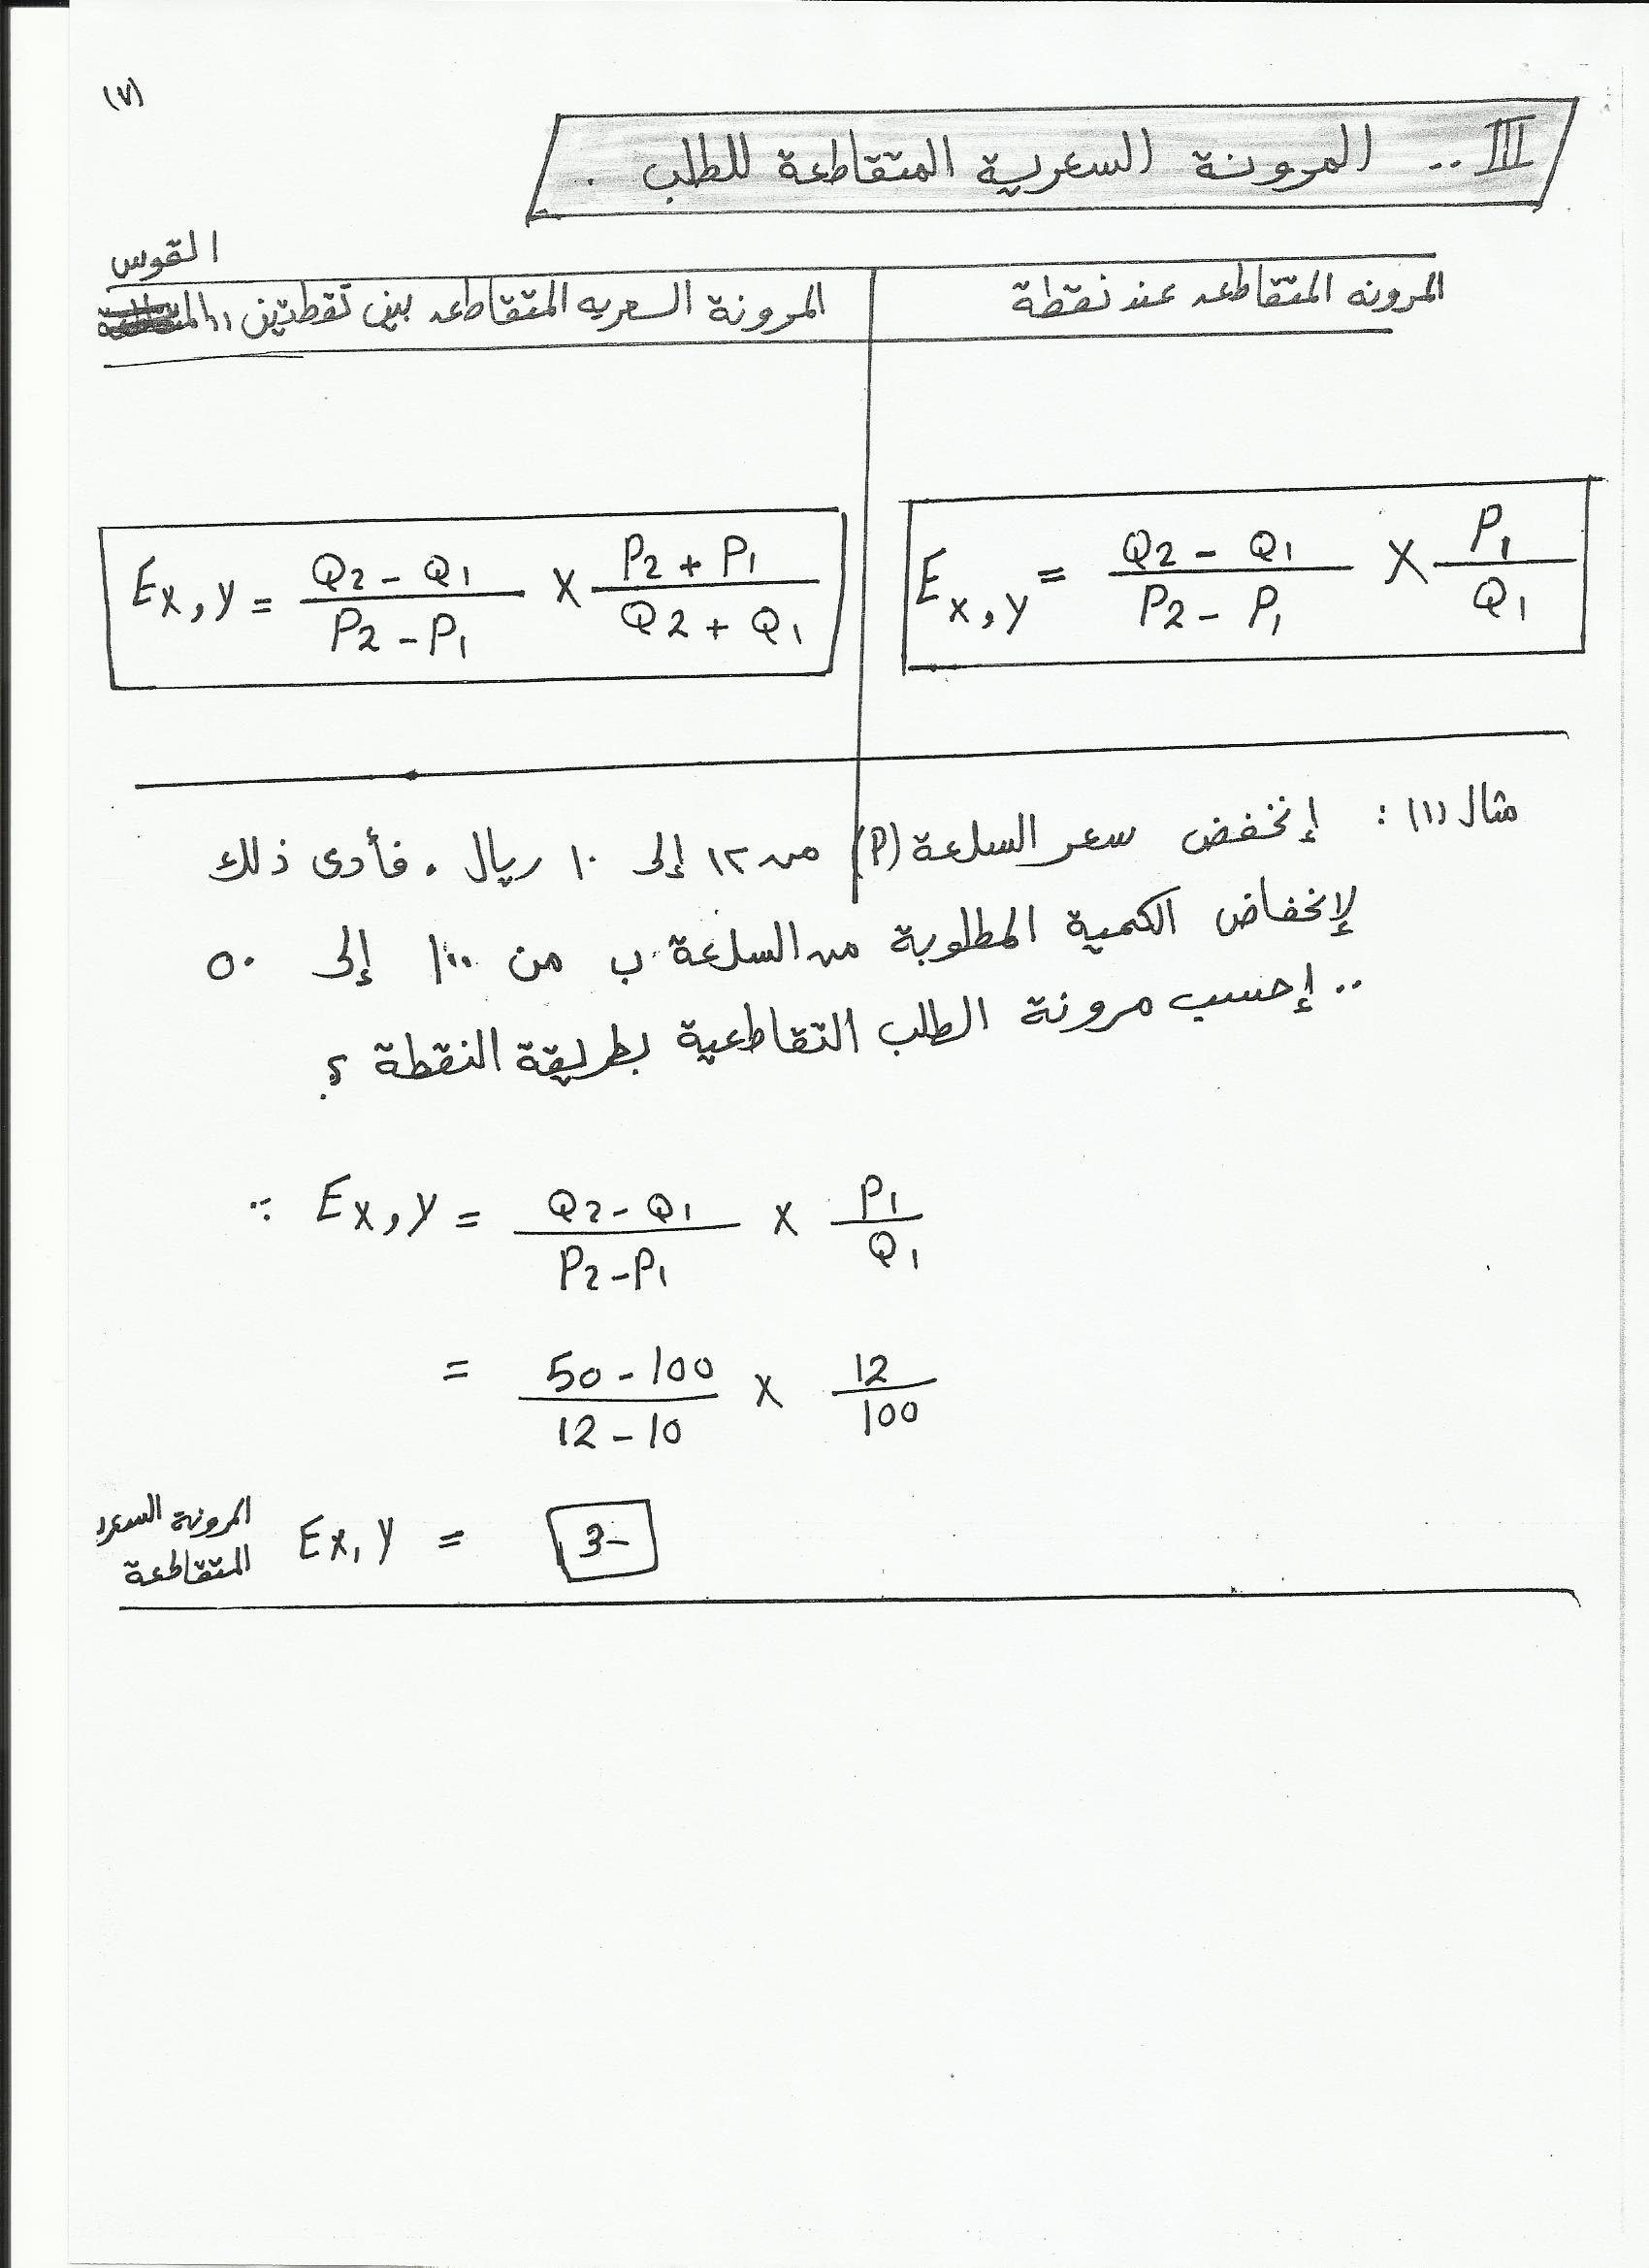 (٧)
III .. المرونة السعرية المتقاطعة للطلب .
المرونه المتقاطعه عند نقطة
القوس
المرونة السعريه المتقاطعه بين نقطتين
E x,y = Q2 - Q1 / P2 - P1 X P1 / Q1
Ex,y = Q2 - Q1 / P2 - P1 X P2 + P1 / Q2 + Q1
مثال (١) : إنخفض سعر السلعة (P) من ١٢ إلى ١٠ ريال . فأدى ذلك
لإنخفاض الكمية المطلوبة من السلعة ب من ١٠٠ إلى ٥٠
.. إحسب مرونة الطلب التقاطعية بطريقة النقطة ؟
∵ Ex,y = Q2 - Q1 / P2 - P1 X P1 / Q1
= 50 - 100 / 12 - 10 X 12 / 100
المرونة السعر
المتقاطعة
Ex,y = 3-